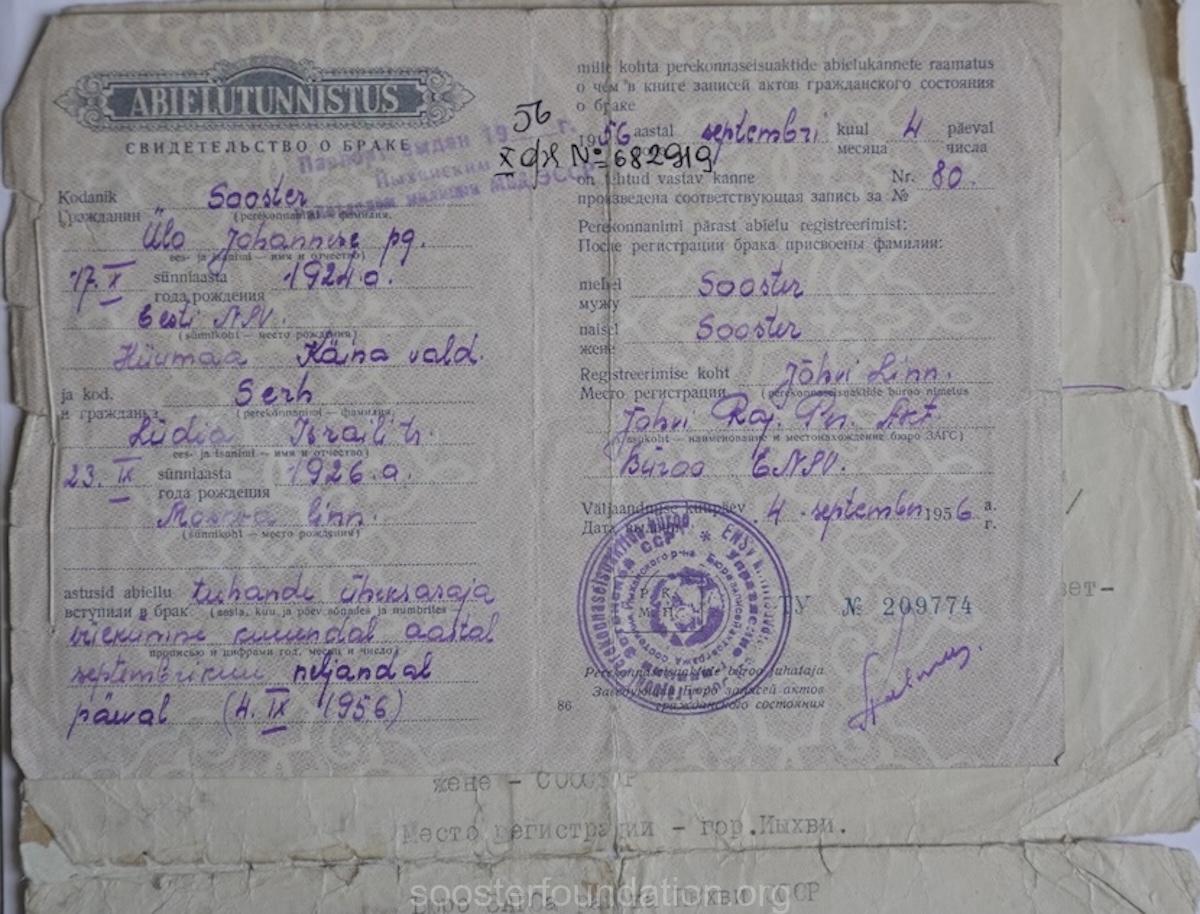 ABIELUTUNNISTUS
СВИДЕТЕЛЬСТВО О БРАКЕ
Паспорт выдан 19 г.
Йыхвиским
милиции МВД ЭССР
56
X ФЖ № 682919
Kodanik Sooster
Гражданин (perekonnanimi — фамилия,
Ülo Johannese pg.
ees- ja isanimi — имя и отчество)
17. X sünniaasta 1924.a.
года рождения
Eesti NSV.
(sünnikoht — место рождения)
Hiiumaa Käina vald.
ja kod. Serh
и гражданка (perekonnanimi — фамилия,
Lidia Israili t.
ees- ja isanimi — имя и отчество)
23. IX sünniaasta 1926.a.
года рождения
Moskva linn.
(sünnikoht — место рождения)
astusid abiellu tuhande üheksasaja
вступили в брак (aasta, kuu ja päev sõnades ja numbrites —
viiekümne kuuendal aastal
прописью и цифрами год, месяц и число)
septembrikuu neljandal
päeval (4. IX 1956)
mille kohta perekonnaseisuaktide abielukannete raamatus
о чем в книге записей актов гражданского состояния
о браке
1956 aastal septembri kuul 4 päeval
месяца числа
on tehtud vastav kanne Nr. 80.
произведена соответствующая запись за №
Perekonnanimi pärast abielu registreerimist:
После регистрации брака присвоены фамилии:
mehel Sooster
мужу
naisel Sooster
жене
Registreerimise koht Jõhvi Linn.
Место регистрации (perekonnaseisuaktide büroo nimetus
Jõhvi Raj. Pn. Akt.
asukoht — наименование и местонахождение бюро ЗАГС)
Büroo ENSV.
Väljaandmise kuupäev 4. septembr 1956 a.
Дата выдачи г.
ТУ № 209774
Perekonnaseisuaktide büroo juhataja
Заведующий Бюро записей актов
гражданского состояния
86
вет-
жене - СООСТЕР
Место регистрации - гор.Йыхви.
soosterfoundation.org